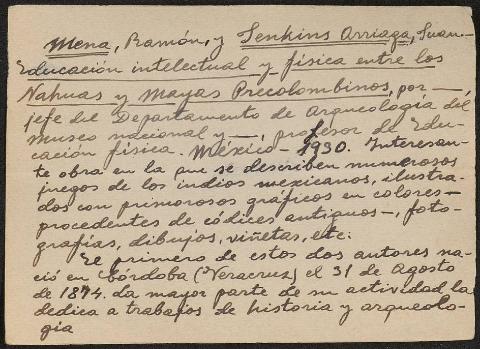 Mena, Ramón, y Jenkins Arriaga, Juan-
Educación intelectual y física entre los
Nahuas y Mayas Precolombinos, por —,
jefe del Departamento de Arqueología del
Museo nacional y —, profesor de Edu-
cación física. México - 1930. Interesan-
te obra en la que se describen numerosos
juegos de los indios mexicanos, ilustra-
dos con primorosos gráficos en colores —
procedentes de códices antiguos —, foto-
grafías, dibujos, viñetas, etc.
El primero de estos dos autores na-
ció en Córdoba (Veracruz) el 31 de Agosto
de 1874. La mayor parte de su actividad la
dedica a trabajos de historia y arqueolo-
gía